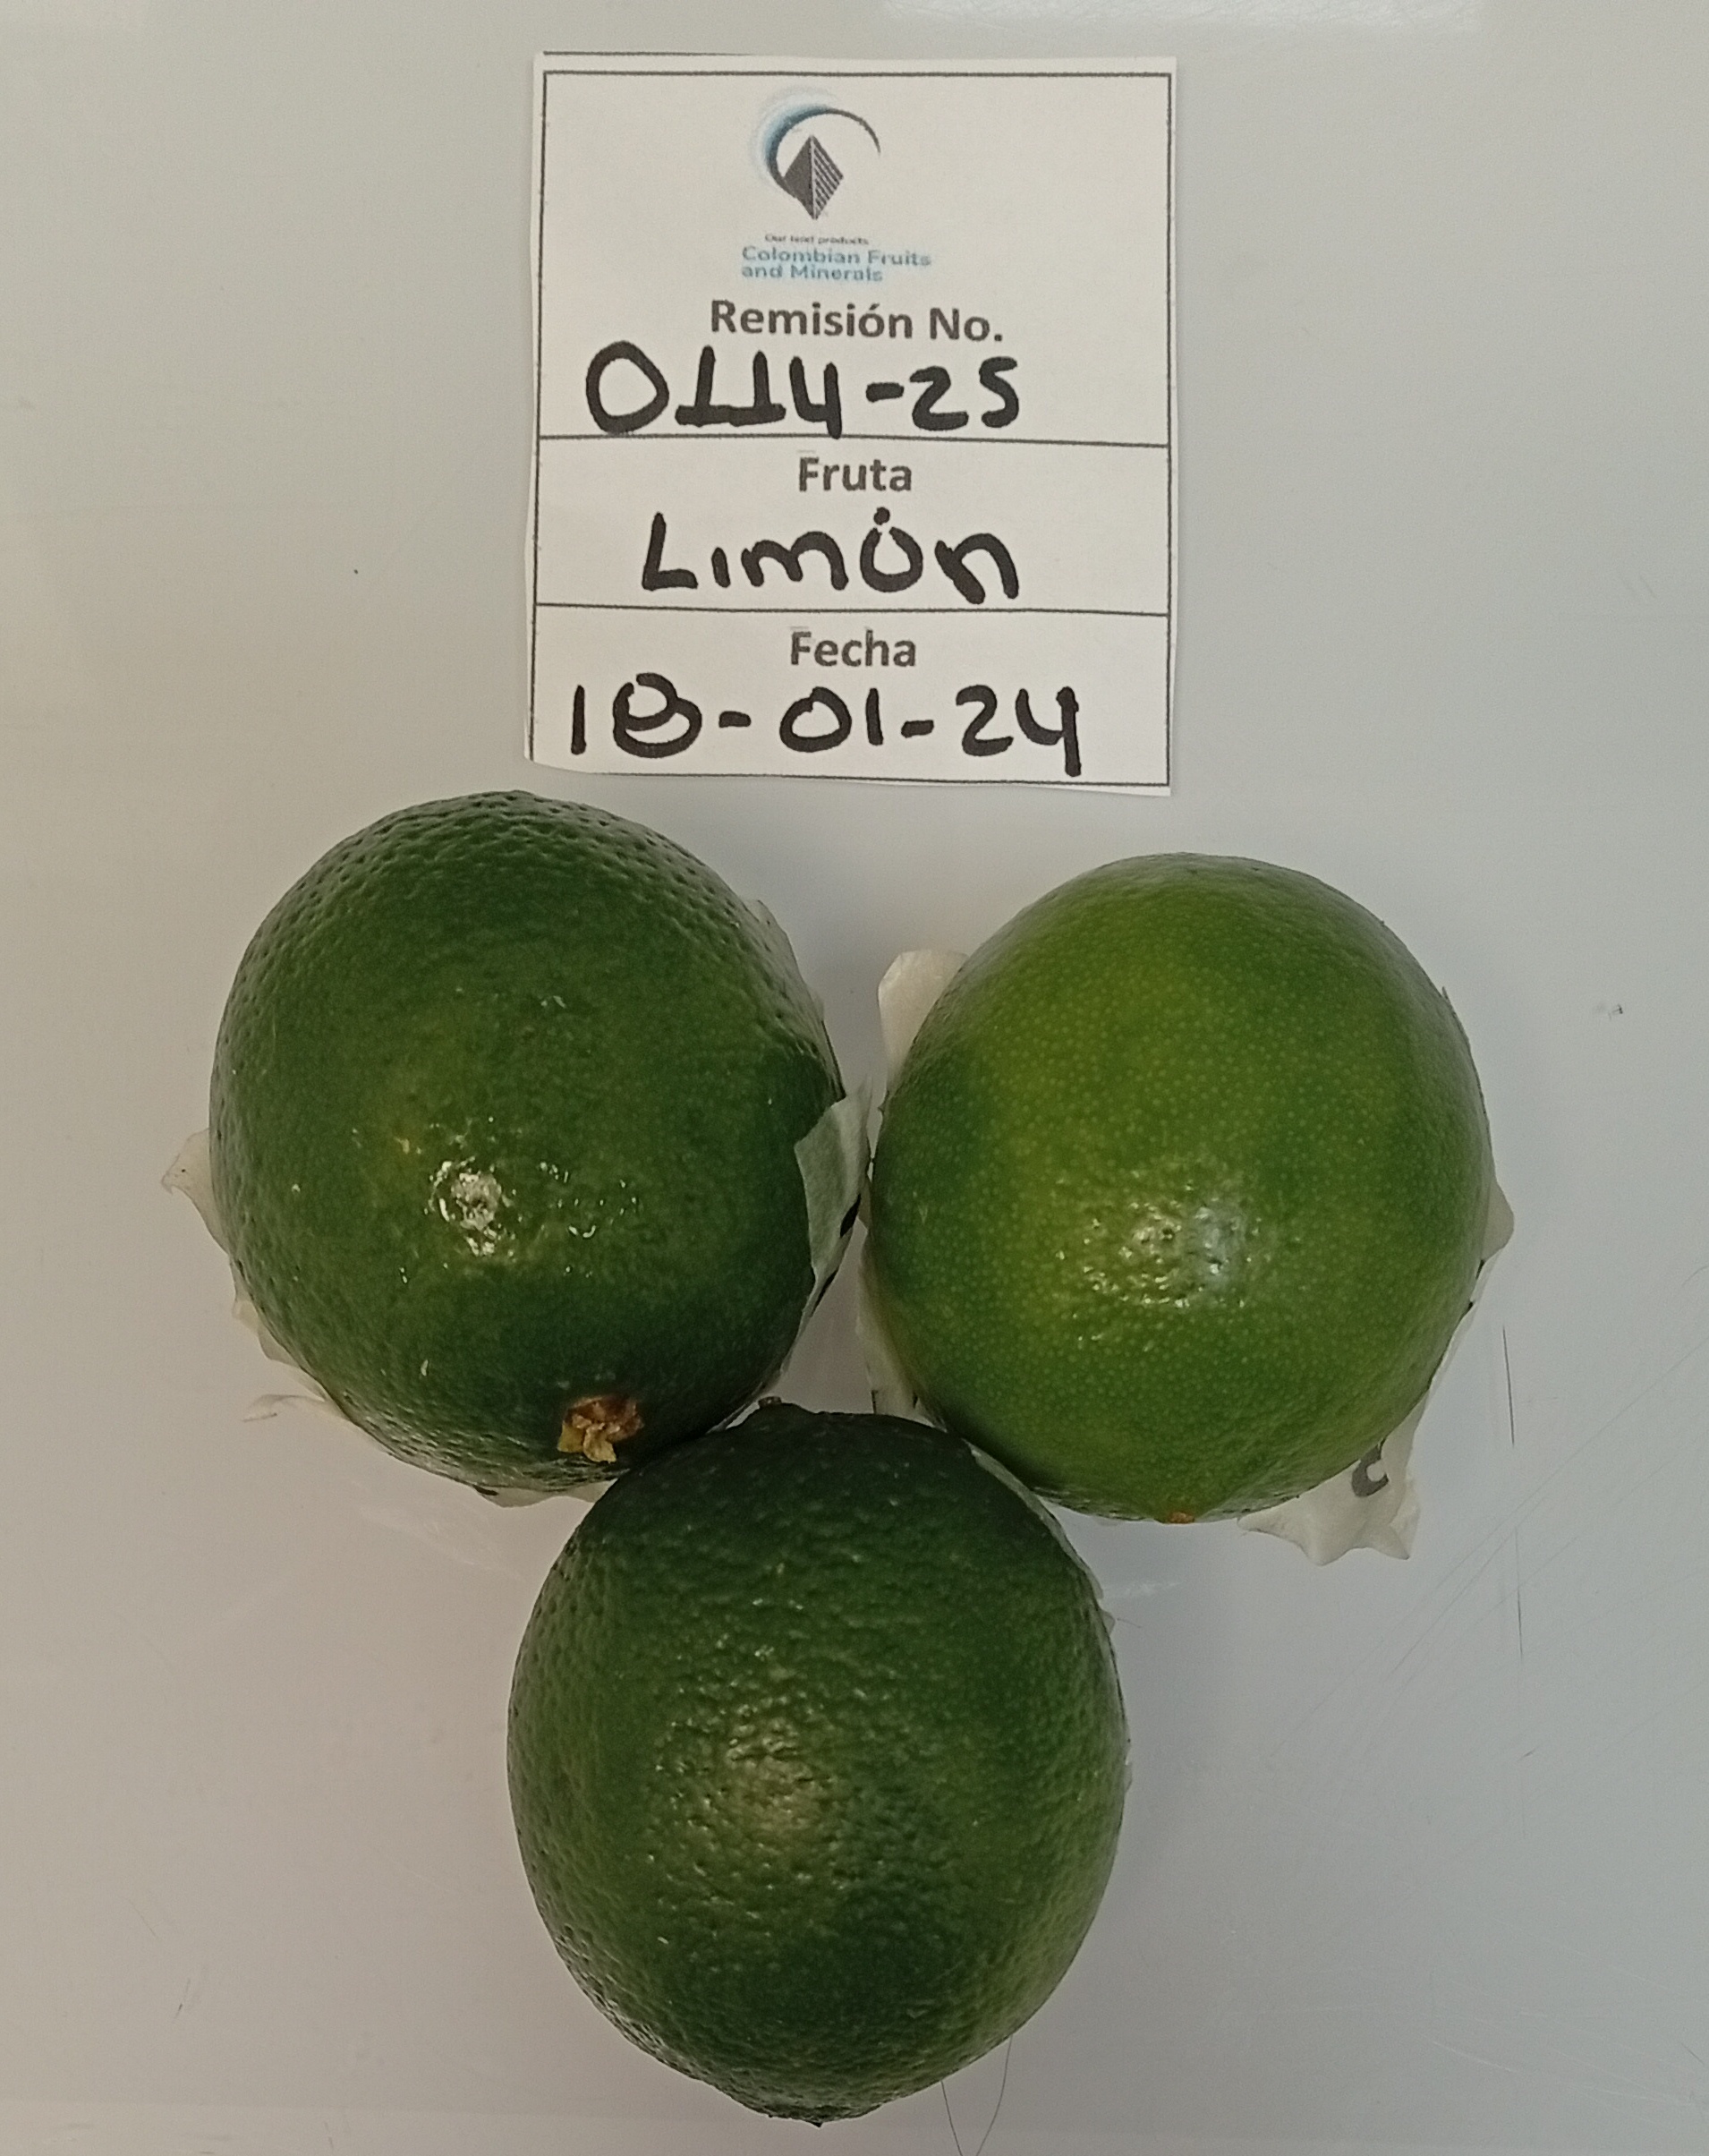 Our land products
Colombian Fruits
and Minerals
Remisión No.
0114-25
Fruta
Limón
Fecha
18-01-24